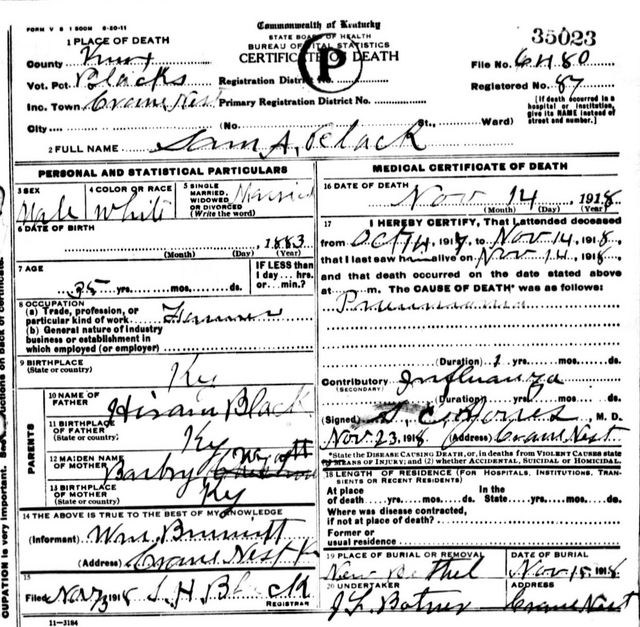 FORM V S 1 500M 6-20-11
Commonwealth of Kentucky
STATE BOARD OF HEALTH
BUREAU OF VITAL STATISTICS
CERTIFICATE OF DEATH
P
35023
1 PLACE OF DEATH
County Knox
Vot. Pct Blacks
Inc. Town Crane Nest
City
Registration District No.
Primary Registration District No.
(No. St., Ward)
File No. 6480
Registered No. 87
[If death occurred in a hospital or institution, give its NAME instead of street and number.]
2 FULL NAME Sam A. Black
PERSONAL AND STATISTICAL PARTICULARS
3 SEX Male
4 COLOR OR RACE White
5 SINGLE MARRIED, WIDOWED OR DIVORCED (Write the word) Married
6 DATE OF BIRTH
, 1883
(Month) (Day) (Year)
7 AGE
35 yrs. mos. ds.
IF LESS than 1 day hrs. or min.?
8 OCCUPATION
(a) Trade, profession, or particular kind of work Farmer
(b) General nature of industry business or establishment in which employed (or employer)
9 BIRTHPLACE (State or country) Ky
PARENTS
10 NAME OF FATHER Hiram Black
11 BIRTHPLACE OF FATHER (State or country) Ky
12 MAIDEN NAME OF MOTHER Barbry
13 BIRTHPLACE OF MOTHER (State or country) Ky
14 THE ABOVE IS TRUE TO THE BEST OF MY KNOWLEDGE
(Informant) Wm.
(Address) Crane Nest K
15
Filed Nov 1918 S. H. Black
REGISTRAR
11-3184
MEDICAL CERTIFICATE OF DEATH
16 DATE OF DEATH
Nov 14, 1918
(Month) (Day) (Year)
17 I HEREBY CERTIFY, That I attended deceased
from Oct 14, 191 to Nov 14, 1918,
that I last saw h alive on Nov 14, 1918,
and that death occurred on the date stated above
at m. The CAUSE OF DEATH* was as follows:
Pneumonia
(Duration) yrs. mos. ds.
Contributory Influanza
(SECONDARY)
(Duration) yrs. mos. ds.
(Signed) Jones, M. D.
Nov. 23, 1918 (Address) Crane Nest
*State the DISEASE CAUSING DEATH, or, in deaths from VIOLENT CAUSES state (1) MEANS OF INJURY; and (2) whether ACCIDENTAL, SUICIDAL or HOMICIDAL.
18 LENGTH OF RESIDENCE (FOR HOSPITALS, INSTITUTIONS, TRANSIENTS OR RECENT RESIDENTS)
At place of death yrs. mos. ds. In the State yrs. mos. ds.
Where was disease contracted, if not at place of death?
Former or usual residence
19 PLACE OF BURIAL OR REMOVAL New Bethel
DATE OF BURIAL Nov 15, 1918
20 UNDERTAKER
ADDRESS
Crane Nest